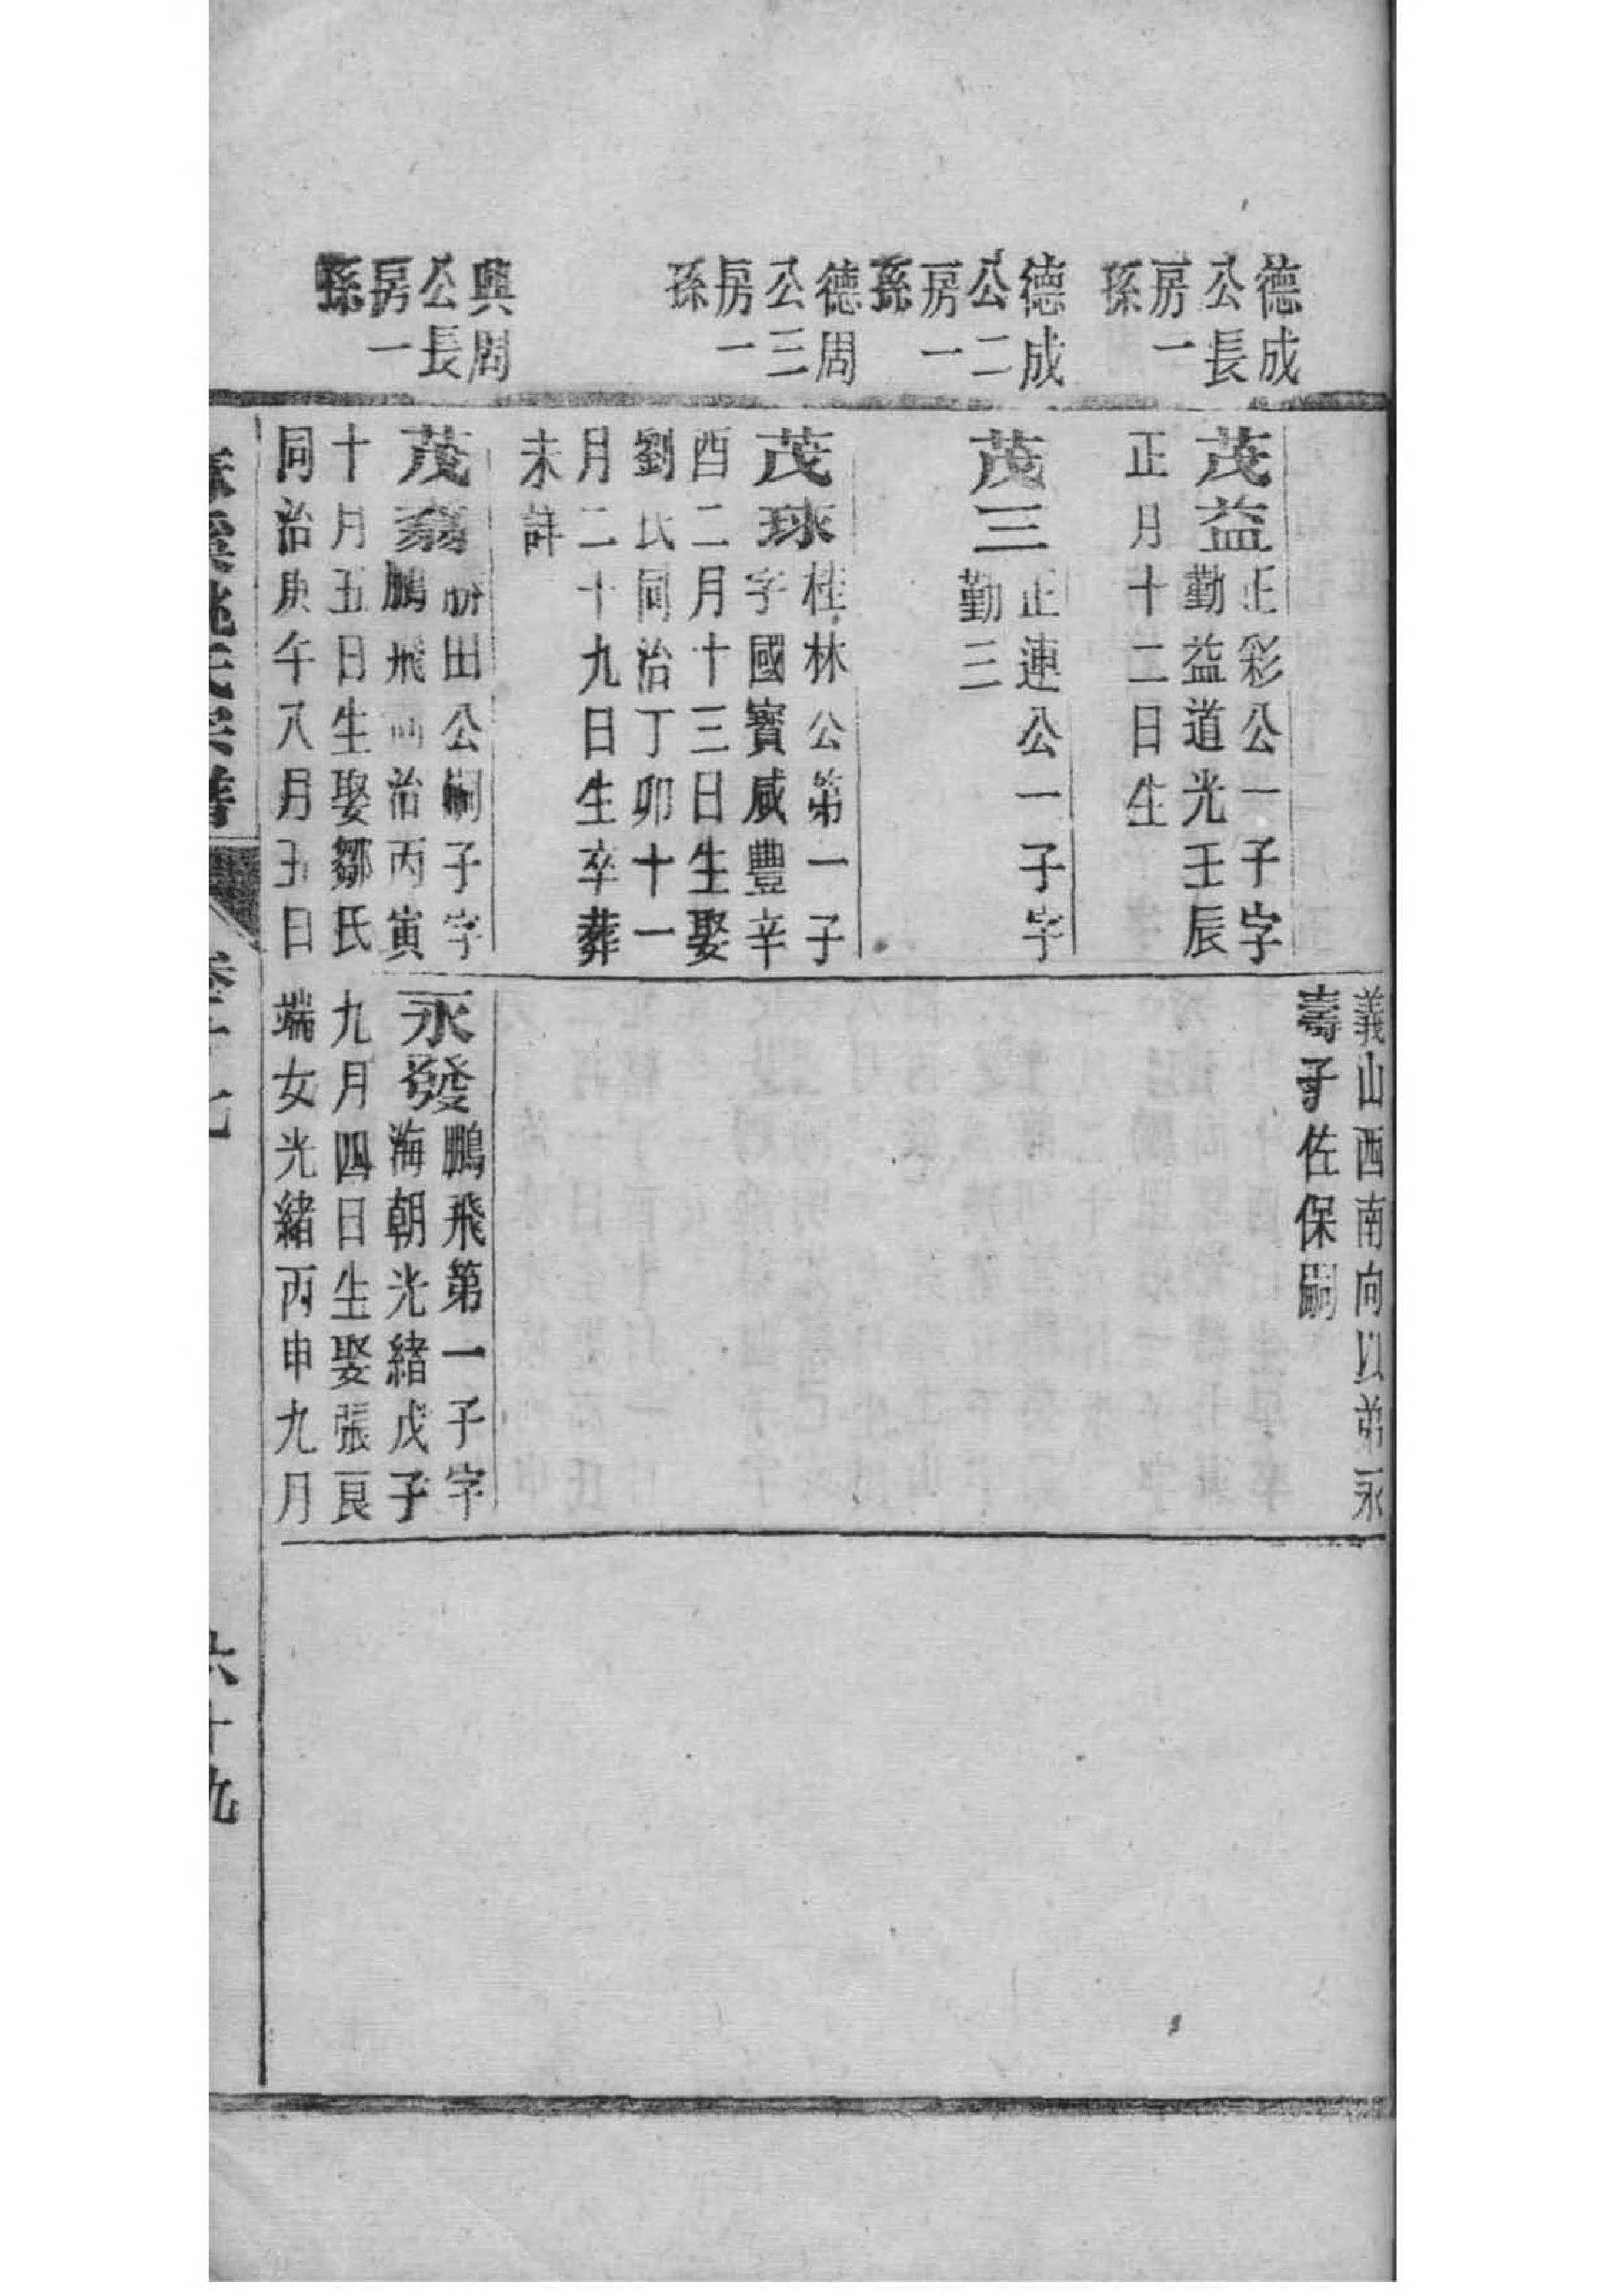 德成
公長
房一
孫
德成
公二
房一
孫
德周
公三
房一
孫
興周
公長
房一
孫
茂益
正彩公一子字
勤益道光壬辰
正月十二日生
茂三
正連公一子字
勤三
茂球
桂林公第一子
字國寳咸豐辛
酉二月十三日生娶
劉氏同治丁卯十一
月二十九日生卒葬
未詳
茂
田公嗣子字
鵬飛同治丙寅
十月五日生娶鄒氏
同治庚午八月五日
義山西南向以弟永
壽子佐保嗣
永發
鵬飛第一子字
海朝光緒戊子
九月四日生娶張良
端女光緒丙申九月
六十九